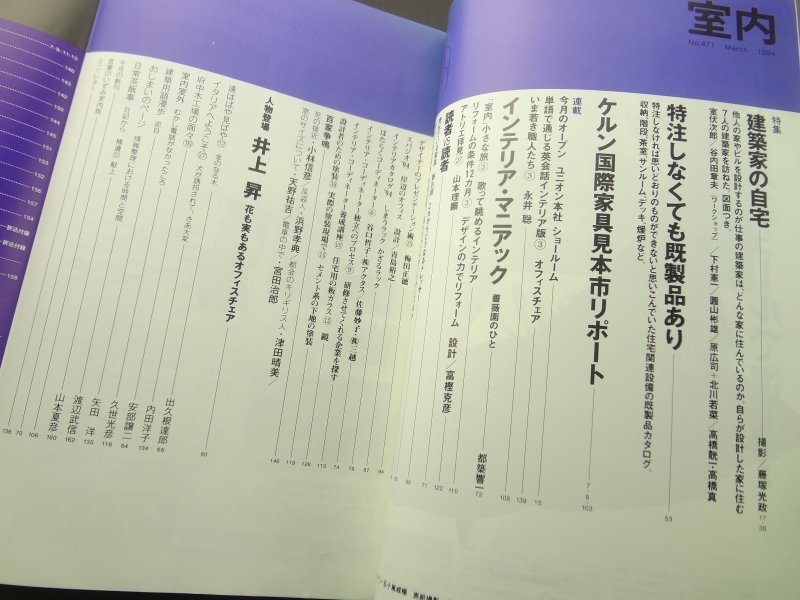 室内
No.471 March 1994
特集
建築家の自宅
他人の家やビルを設計するのが仕事の建築家は、どんな家に住んでいるのか。自らが設計した家に住む
7人の建築家を訪ねた。図面つき。
室伏次郎／谷内田章夫(ワークショップ)／下村憲一／圓山彬雄／原広司+北川若菜／高橋靗一・高橋真
撮影／藤塚光政 17
39
特注しなくても既製品あり
53
特注しなければ思いどおりのものができないと思いこんでいた住宅関連設備の既製品カタログ。
収納、階段、茶室、サンルーム、デッキ、煖炉など。
ケルン国際家具見本市リポート
103
連載
今月のオープン ユニオン本社 ショールーム
7
単語で通じる英会話インテリア版③ オフィスチェア
9
いま若き職人たち③ 永井 聡
15
139
インテリア・マニアック 薔薇園のひと
108
都築響一 72
「室内」小さな旅③ 歌って眺めるインテリア
リフォームの条件12カ月③ デザインの力でリフォーム 設計／富樫克彦
110
アトリエ拝見㉗ 山本理顕
122
読者vs読者
71
デザイナーのプレゼンテーション術⑮ 梅田正徳
スパジオ'94 岸辺のオフィス 設計／青島裕之
インテリアカタログ'94 しまうラック かざるラック
94
はたらくコーディネーター⑥ 谷口哲子・㈱アクタス／佐藤妙子・㈱三越
87
インテリア・コーディネーター独立へのプロセス⑨ 研修させてくれる企業を探す
79
インテリア・コーディネーター養成講座⑯ 住宅用の板ガラス⑫ 鏡
74
設計者のための塗装⑱ 実際の塗装現場で⑮ セメント系の下地の塗装
113
百家争鳴
死の接近・小林信彦／瓜盗人・浜野孝典／都会のキリギリス人・津田晴美／
窓のサイズについて・天野祐吉／電車の中で・宮田治郎
126
119
146
人物登場 井上 昇 花も実もあるオフィスチェア
60
逢はばや見ばや⑫ 金のなる木
出久根達郎 66
イタリアへようこそ㉗ 犬が表彰されて、さあ大変
内田洋子 134
府中木工場の面々⑲
安部譲二 64
室内室外 むかし電話がなかったころ
久世光彦 116
建築用語漫歩 逆目
矢田 洋 135
おしまいのページ 情報整理における時間と空間
渡辺武信 162
日常茶飯事
山本夏彦 160
今月の新刊 106
70
138
7・9・11・13
140
143
152
144
158